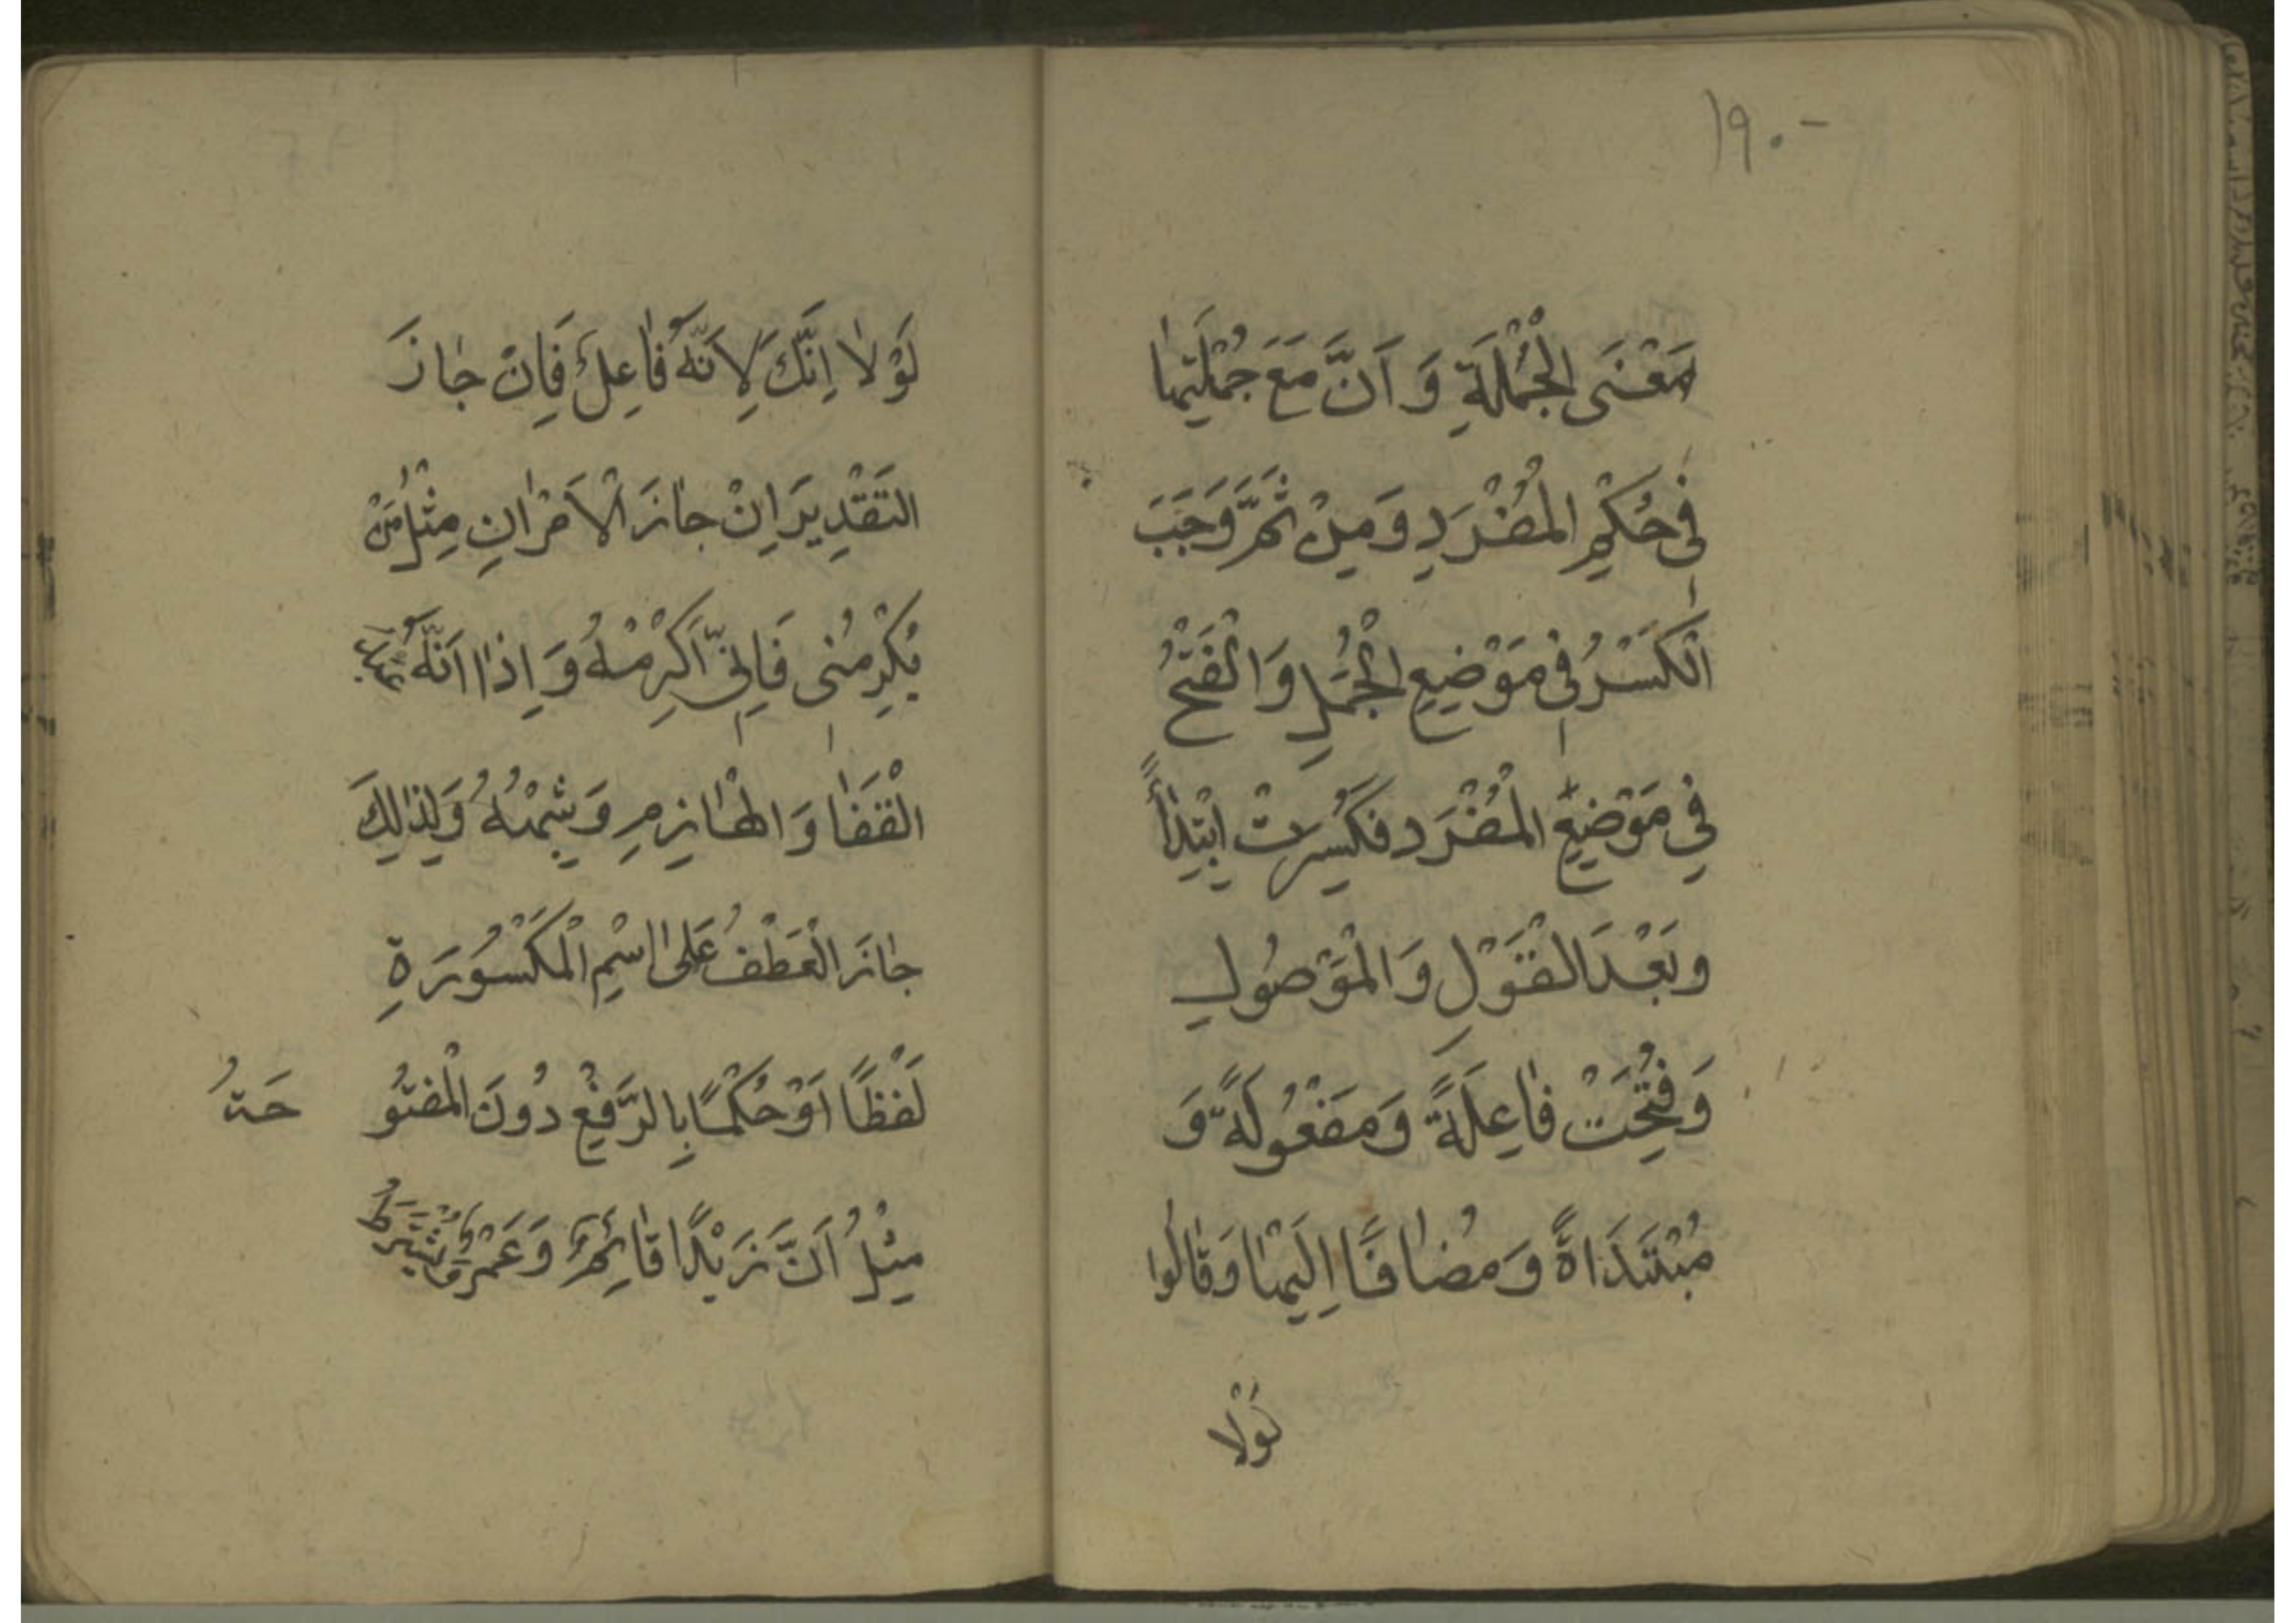 ١٩٠-
مَعْنَى الْجُمْلَةِ وَ اَنَّ مَعَ جُمْلَتِهٰا
فِى حُكْمِ الْمُفْرَدِ وَ مِنْ ثَمَّ وَجَبَ
الْكَسْرُ فِى مَوْضِعِ الْجُمَلِ وَ الْفَتْحُ
فِى مَوْضِعِ الْمُفْرَد فَكُسِرَتْ اِبْتِدٰاءً
وبَعْدَ الْقَوْلِ وَ الْمَوْصُولِ
وَ فُتِحَتْ فٰاعِلَةً وَ مَفْعُولَةً وَ
مُبْتَدَاةً وَ مُضٰافًا اِلَيْهٰا وَ قٰالُوا
لَوْلا
لَوْلاٰ اِنَّكَ لِاَنَّهُ فٰاعِلٌ فَاِنْ جٰازَ
التَقْدِيرَ اِنْ جٰازَ الْاَمْرٰانِ مِثْلُ مَنْ
يُكْرِمُنى فَاِنّى اُكْرِمْهُ وَ اِذٰا اَنَّهُ عَبْدُ
الْقَفٰا وَ الهٰازِمِ وَ شِبْهُهُ وَ لِذٰلِكَ
جٰازَ الْعَطْفُ عَلىٰ اسْمِ الْمَكْسُورَةِ
لَفْظًا اَوْ حُكْمًا بِالرَّفْعِ دُونَ الْمَفْتُو حَةُ
مِثْلُ اَنَّ زَيْدًا قٰائِمٌ وَ عَمْرٌو